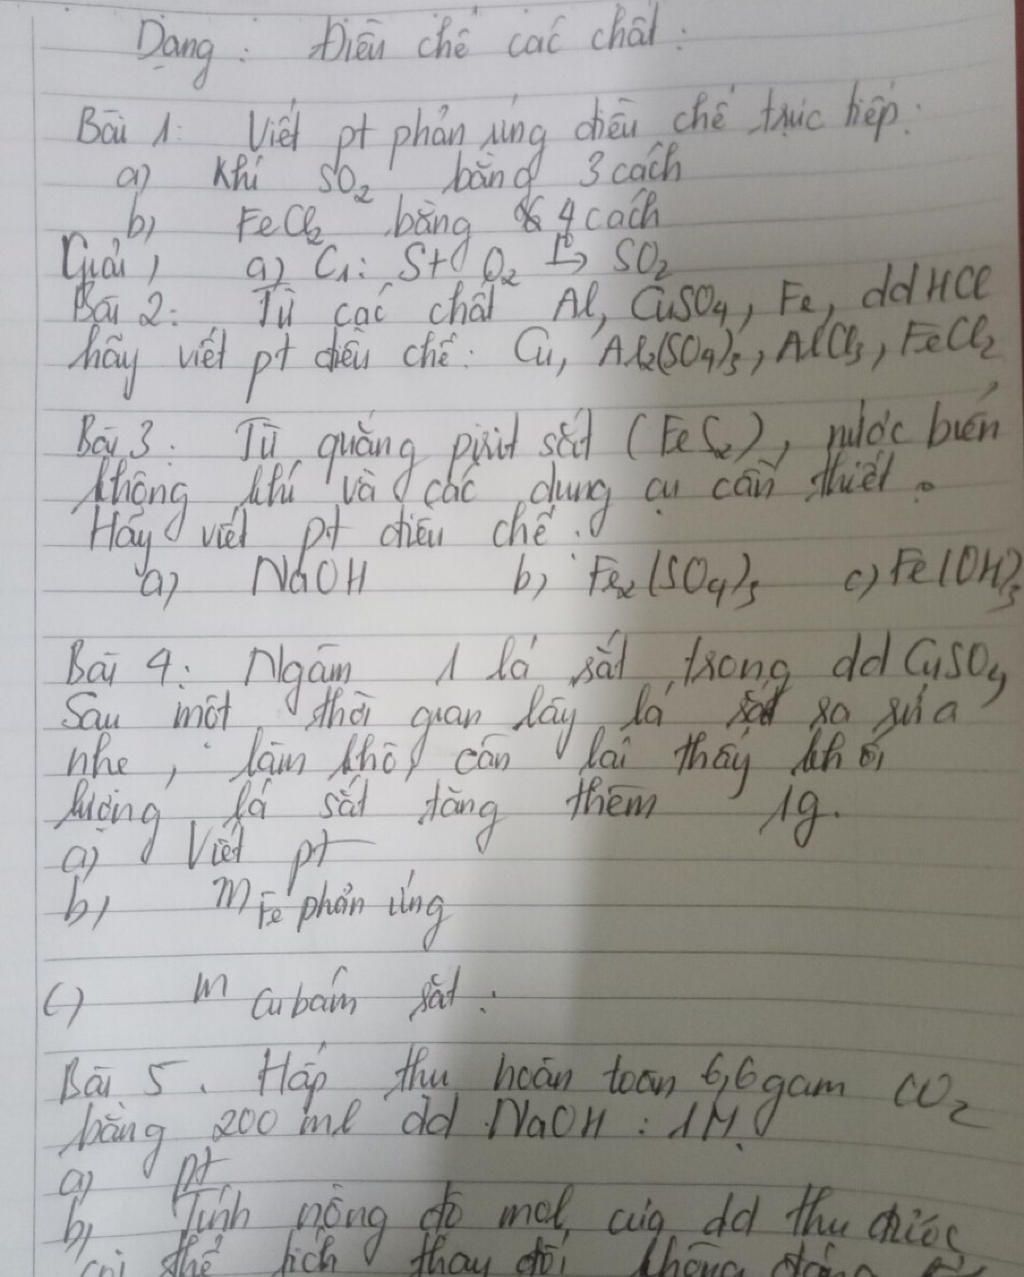 Dạng : Điều chế các chất :
Bài 1: Viết pt phản ứng điều chế trực tiếp:
a) Khí SO₂ bằng 3 cách
b) FeCl₂ bằng 4 cách
Giải) a) C₁: S + O₂ t°→ SO₂
Bài 2: Từ các chất Al, CuSO₄, Fe, dd HCl
hãy viết pt điều chế: Cu, Al₂(SO₄)₃, AlCl₃, FeCl₂
Bài 3: Từ quặng pirit sắt (FeS₂), nước biển
không khí và các dụng cụ cần thiết.
Hãy viết pt điều chế :
a) NaOH b) Fe₂(SO₄)₃ c) Fe(OH)₃
Bài 4: Ngâm 1 lá sắt trong dd CuSO₄
Sau một thời gian lấy lá sắt ra rửa
nhẹ, làm khô, cân lại thấy khối
lượng lá sắt tăng thêm 1g.
a) Viết pt
b) m Fe phản ứng
c) m Cu bám sắt :
Bài 5. Hấp thu hoàn toàn 6,6 gam CO₂
bằng 200 ml dd NaOH : 1M.
a) pt
b) Tính nồng độ mol của dd thu được
coi thể tích thay đổi không đáng